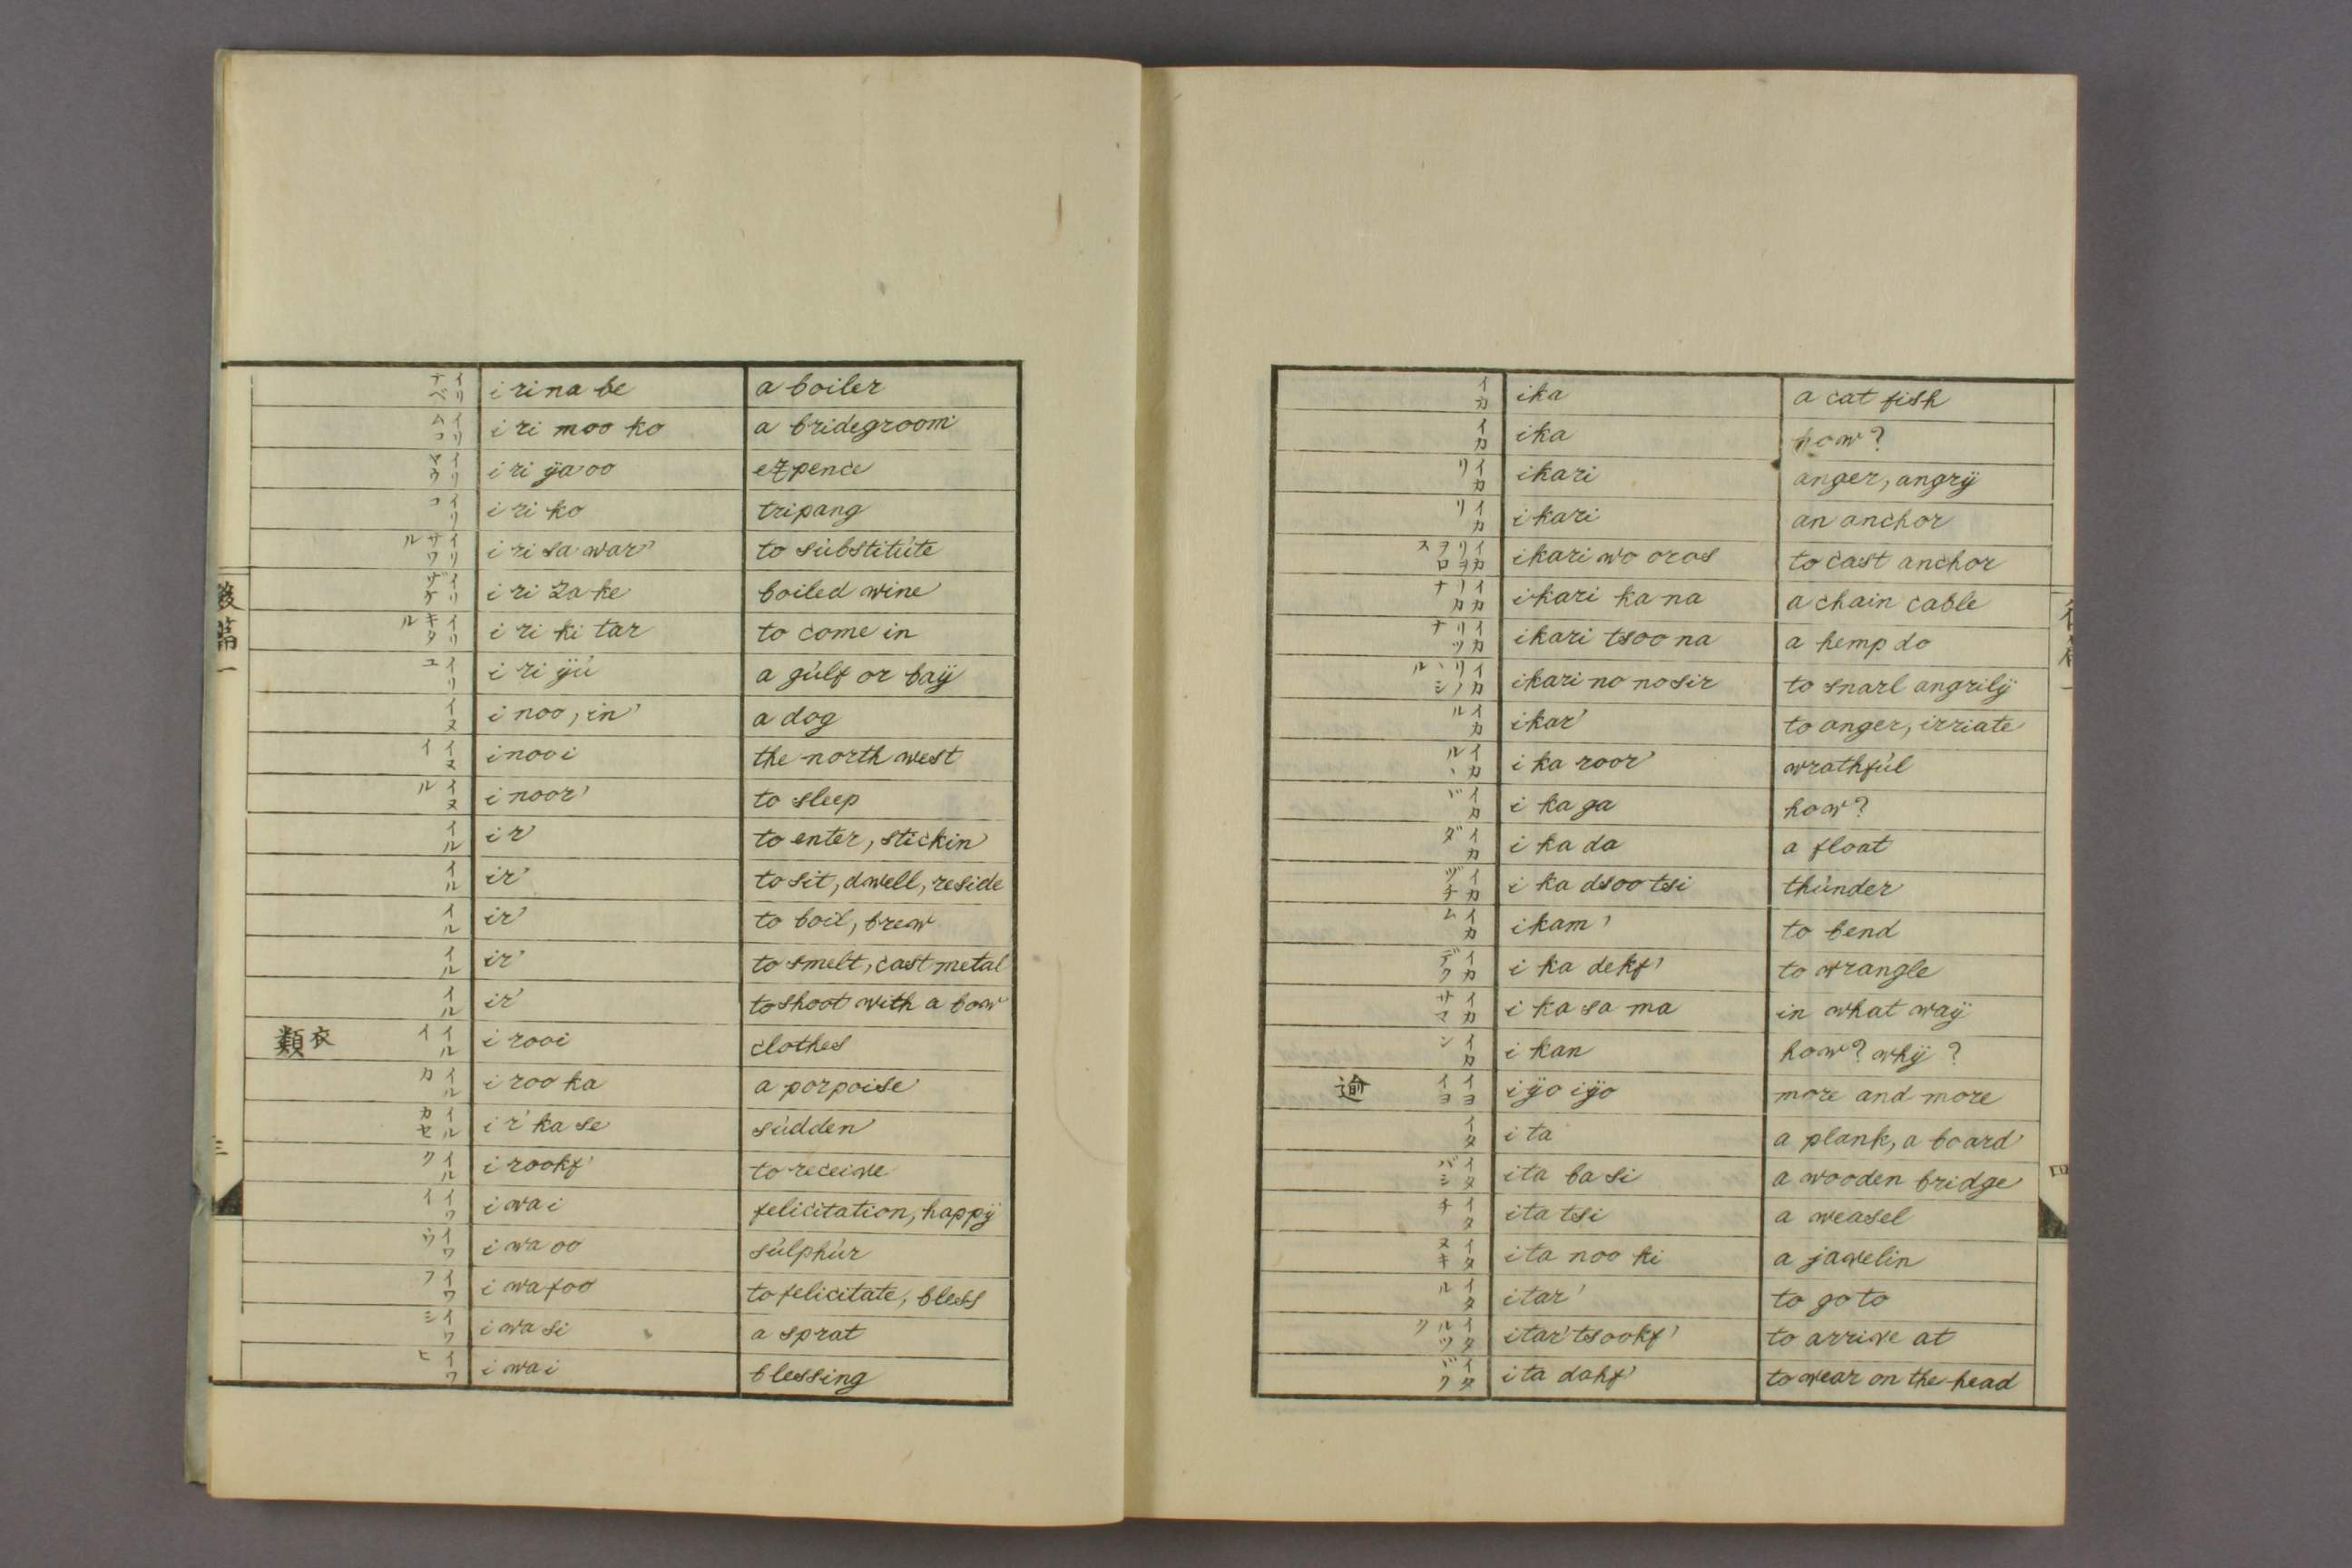 イリナベ i ri na be a boiler
イリムコ i ri moo ko a bridegroom
イリヤウ i ri ÿa oo expence
イリコ i ri ko tripang
イリサワル i ri sa war' to sùbstitùte
イリザケ i ri za ke boiled wine
イリキタル i ri ki tar to come in
イリユ i ri ÿù a gùlf or baÿ
イヌ i noo, in' a dog
イヌイ i noo i the north west
イヌル i noor' to sleep
イル ir' to enter, stickin
イル ir' to sit, dwell, reside
イル ir' to boil, brew
イル ir' to smelt, cast metal
イル ir' to shoot with a bow
衣類 イルイ i rooi clothes
イルカ i roo ka a porpoise
イルカセ i r' ka se sùdden
イルク i rookf' to receive
イワイ i wa i felicitation, happÿ
イワウ i wa oo sùlphùr
イワフ i wa foo to felicitate, bless
イワシ i wa si a sprat
イワヒ i wa i blessing
後篇一
三
イカ ika a cat fish
イカ ika how?
イカリ ikari anger, angrÿ
イカリ ikari an anchor
イカリヲヲロス ikari wo oros to cast anchor
イカリカナ ikari ka na a chain cable
イカリツナ ikari tsoo na a hemp do
イカリノヽシル ikari no nosir to snarl angrilÿ
イカル ikar' to anger, irriate
イカヽル i ka roor' wrathfùl
イカヾ i ka ga how?
イカダ i ka da a float
イカヅチ i ka dsoo tsi thùnder
イカム ikam' to bend
イカデク i ka dekf' to wrangle
イカサマ i ka sa ma in what waÿ
イカン i kan how? whÿ?
逾 イヨイヨ i ÿo i ÿo more and more
イタ i ta a plank, a board
イタバシ ita ba si a wooden bridge
イタチ ita tsi a weasel
イタヌキ ita noo ki a javelin
イタル itar' to go to
イタルツク itar' tsookf' to arrive at
イタヾク ita dakf' to wear on the head
四